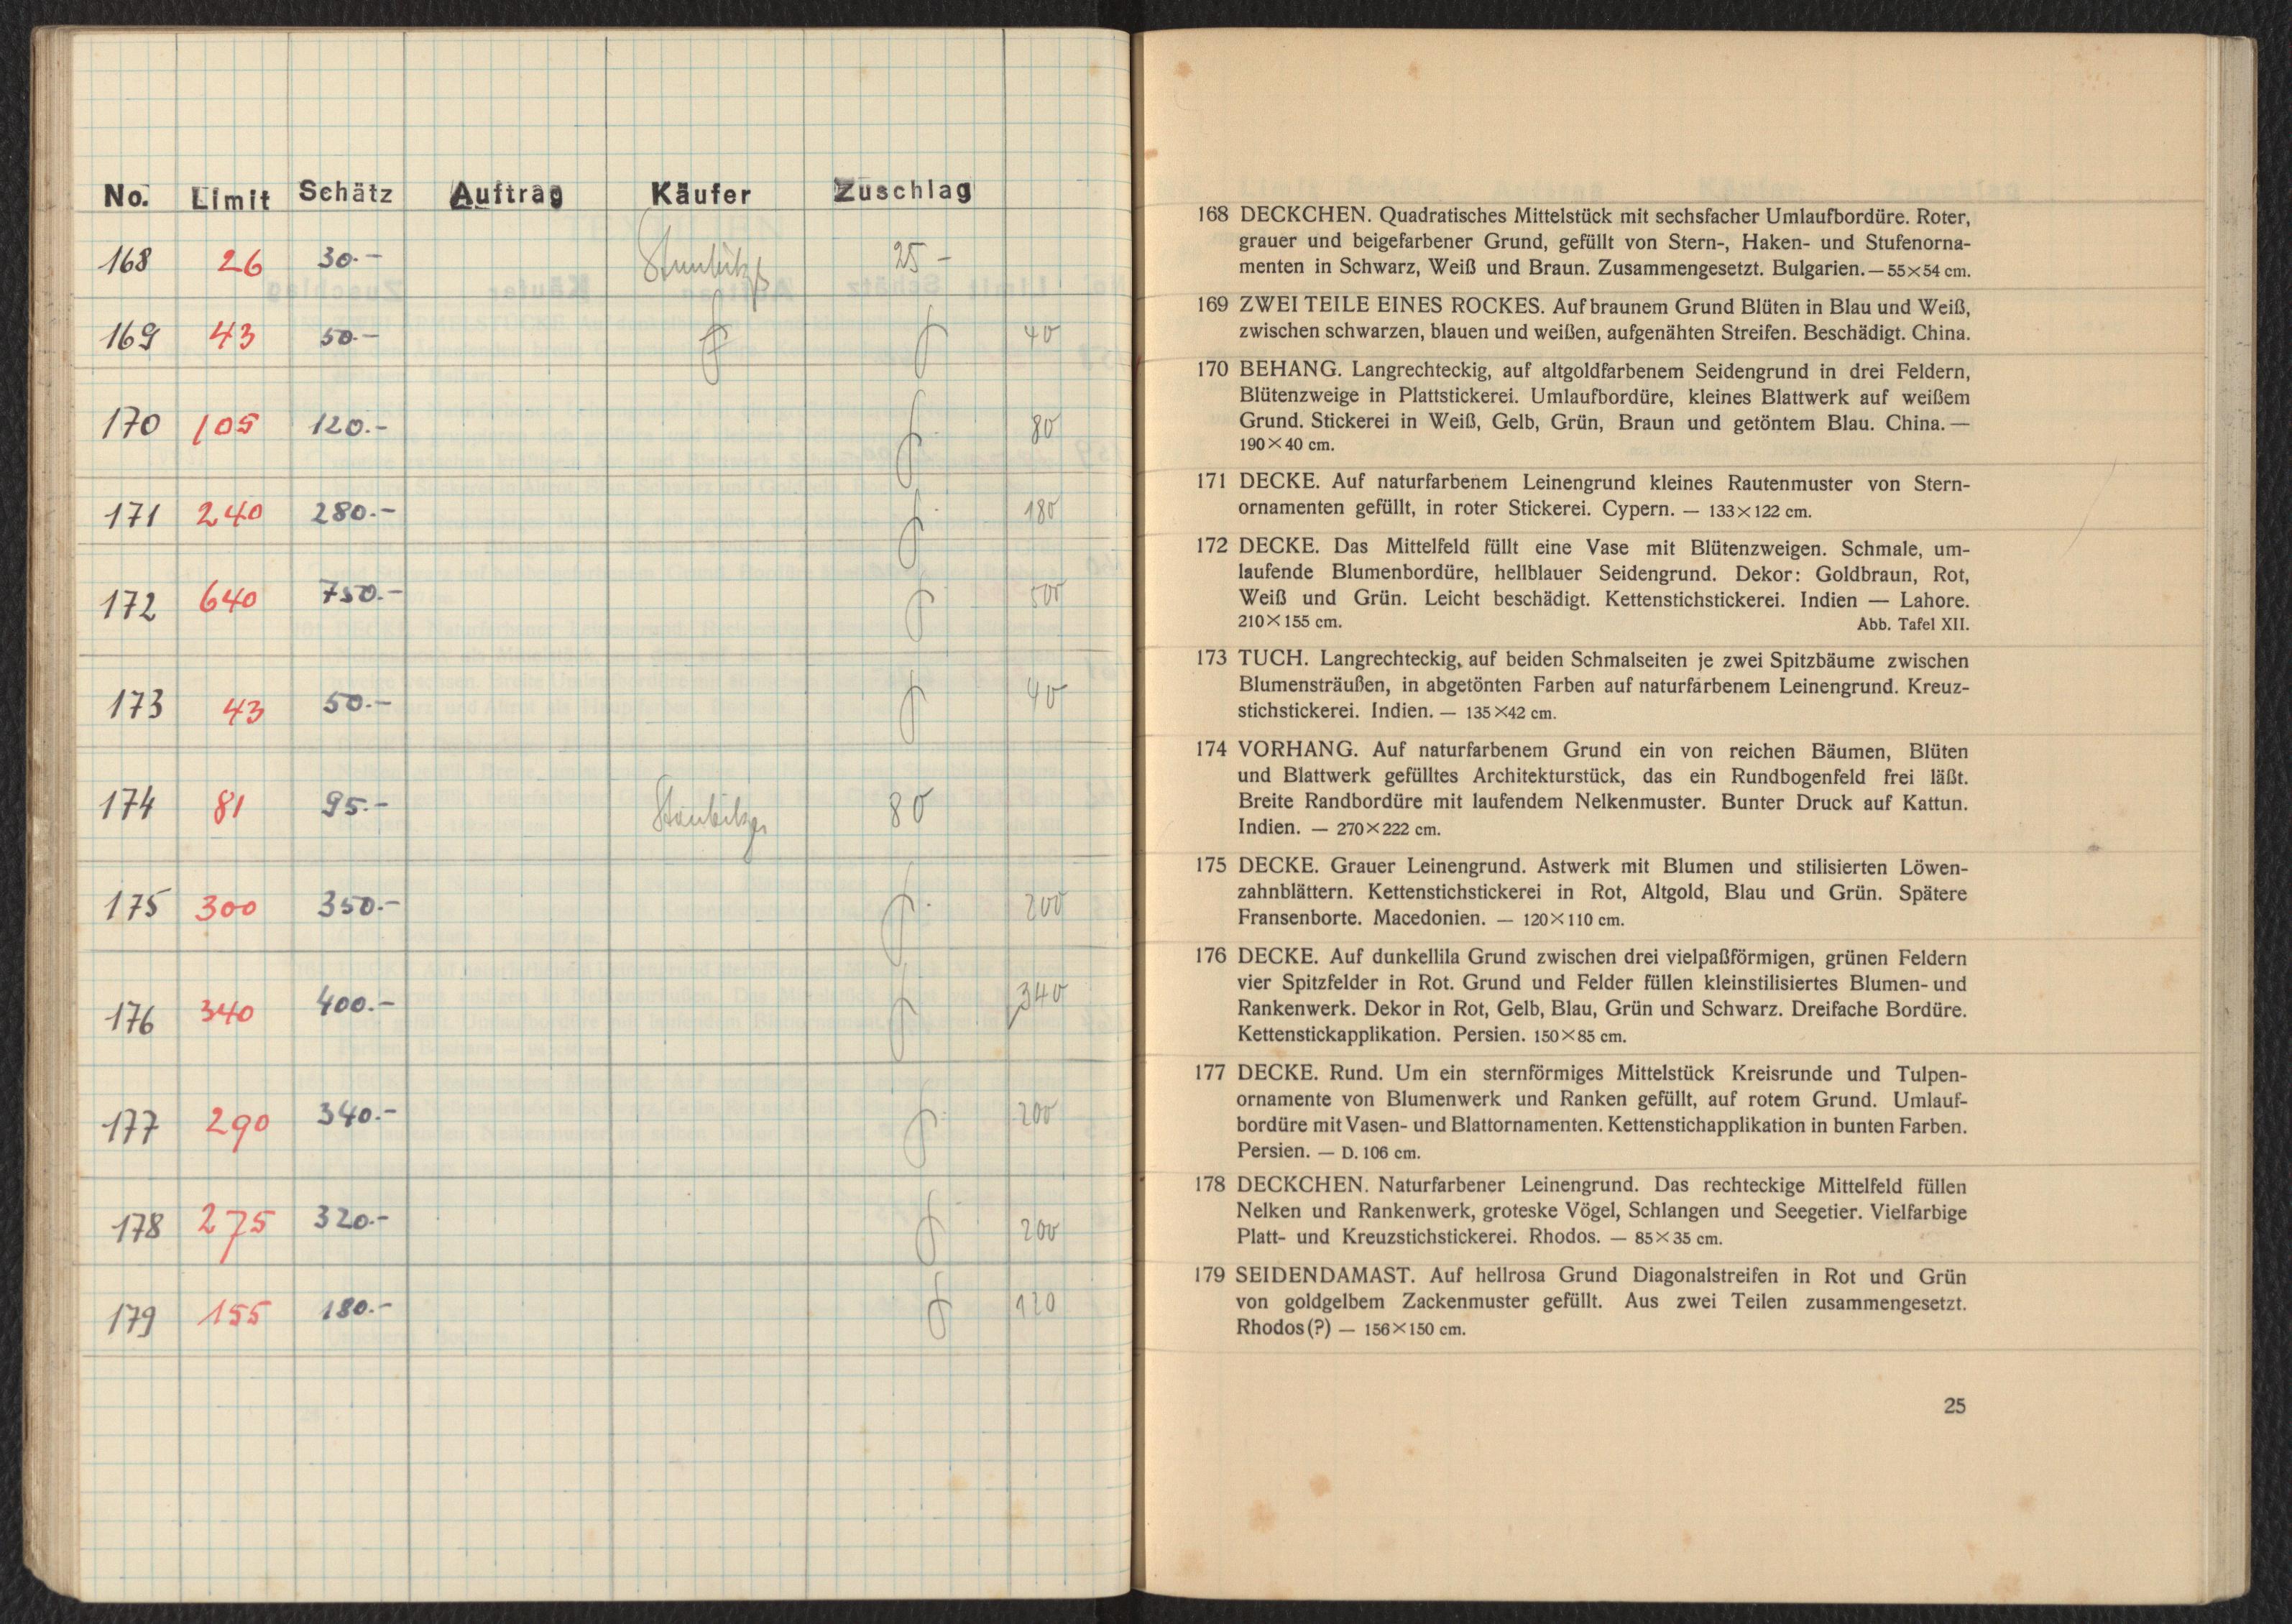 No. Limit Schätz Auftrag Käufer Zuschlag
168 26 30.- 25 -
169 43 50.- 40
170 105 120.- 80
171 240 280.- 180
172 640 750.- 500
173 43 50.- 40
174 81 95.- 80
175 300 350.- 200
176 340 400.- 340
177 290 340.- 200
178 275 320.- 200
179 155 180.- 120
168 DECKCHEN. Quadratisches Mittelstück mit sechsfacher Umlaufbordüre. Roter,
grauer und beigefarbener Grund, gefüllt von Stern-, Haken- und Stufenorna-
menten in Schwarz, Weiß und Braun. Zusammengesetzt. Bulgarien. — 55×54 cm.
169 ZWEI TEILE EINES ROCKES. Auf braunem Grund Blüten in Blau und Weiß,
zwischen schwarzen, blauen und weißen, aufgenähten Streifen. Beschädigt. China.
170 BEHANG. Langrechteckig, auf altgoldfarbenem Seidengrund in drei Feldern,
Blütenzweige in Plattstickerei. Umlaufbordüre, kleines Blattwerk auf weißem
Grund. Stickerei in Weiß, Gelb, Grün, Braun und getöntem Blau. China. —
190×40 cm.
171 DECKE. Auf naturfarbenem Leinengrund kleines Rautenmuster von Stern-
ornamenten gefüllt, in roter Stickerei. Cypern. — 133×122 cm.
172 DECKE. Das Mittelfeld füllt eine Vase mit Blütenzweigen. Schmale, um-
laufende Blumenbordüre, hellblauer Seidengrund. Dekor: Goldbraun, Rot,
Weiß und Grün. Leicht beschädigt. Kettenstichstickerei. Indien — Lahore.
210×155 cm. Abb. Tafel XII.
173 TUCH. Langrechteckig, auf beiden Schmalseiten je zwei Spitzbäume zwischen
Blumensträußen, in abgetönten Farben auf naturfarbenem Leinengrund. Kreuz-
stichstickerei. Indien. — 135×42 cm.
174 VORHANG. Auf naturfarbenem Grund ein von reichen Bäumen, Blüten
und Blattwerk gefülltes Architekturstück, das ein Rundbogenfeld frei läßt.
Breite Randbordüre mit laufendem Nelkenmuster. Bunter Druck auf Kattun.
Indien. — 270×222 cm.
175 DECKE. Grauer Leinengrund. Astwerk mit Blumen und stilisierten Löwen-
zahnblättern. Kettenstichstickerei in Rot, Altgold, Blau und Grün. Spätere
Fransenborte. Macedonien. — 120×110 cm.
176 DECKE. Auf dunkellila Grund zwischen drei vielpaßförmigen, grünen Feldern
vier Spitzfelder in Rot. Grund und Felder füllen kleinstilisiertes Blumen- und
Rankenwerk. Dekor in Rot, Gelb, Blau, Grün und Schwarz. Dreifache Bordüre.
Kettenstickapplikation. Persien. 150×85 cm.
177 DECKE. Rund. Um ein sternförmiges Mittelstück Kreisrunde und Tulpen-
ornamente von Blumenwerk und Ranken gefüllt, auf rotem Grund. Umlauf-
bordüre mit Vasen- und Blattornamenten. Kettenstichapplikation in bunten Farben.
Persien. — D. 106 cm.
178 DECKCHEN. Naturfarbener Leinengrund. Das rechteckige Mittelfeld füllen
Nelken und Rankenwerk, groteske Vögel, Schlangen und Seegetier. Vielfarbige
Platt- und Kreuzstichstickerei. Rhodos. — 85×35 cm.
179 SEIDENDAMAST. Auf hellrosa Grund Diagonalstreifen in Rot und Grün
von goldgelbem Zackenmuster gefüllt. Aus zwei Teilen zusammengesetzt.
Rhodos (?) — 156×150 cm.
25